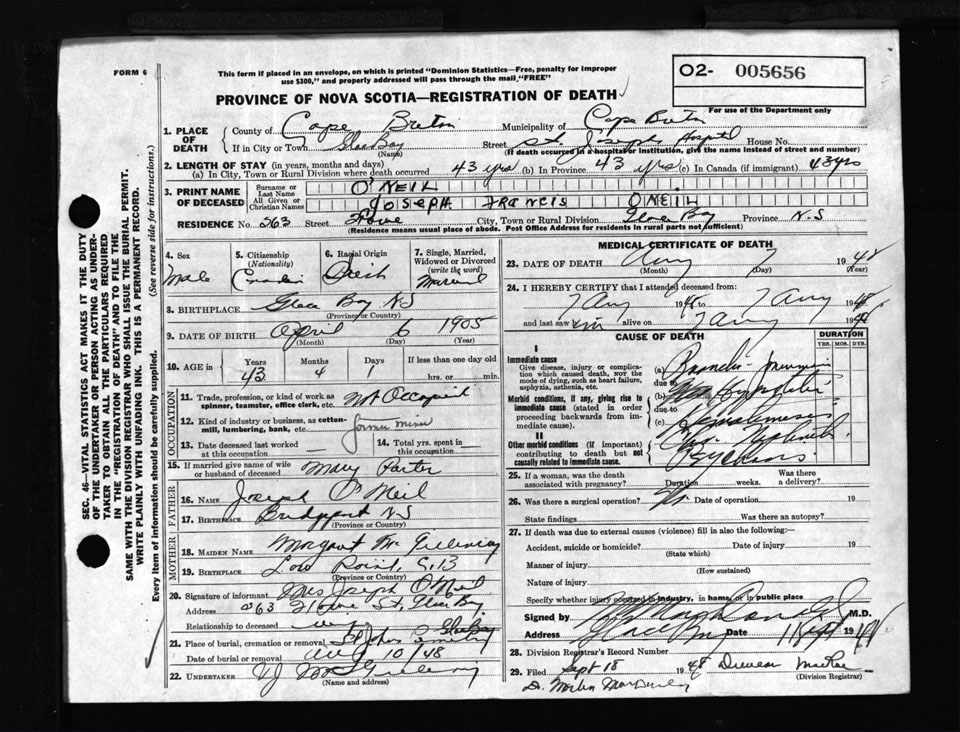 FORM 6
This form if placed in an envelope, on which is printed "Dominion Statistics—Free, penalty for improper
use $300," and properly addressed will pass through the mail "FREE"
O2- 005656
For use of the Department only
PROVINCE OF NOVA SCOTIA—REGISTRATION OF DEATH
1. PLACE OF DEATH
County of Cape Breton Municipality of Cape Breton
If in City or Town Glace Bay (Name) Street St. Joseph Hospital House No.
(If death occurred in a hospital or institution, give the name instead of street and number)
2. LENGTH OF STAY (in years, months and days)
(a) In City, Town or Rural Division where death occurred 43 yrs (b) In Province 43 yrs (c) In Canada (if immigrant) 43 yrs
3. PRINT NAME OF DECEASED
Surname or Last Name O'NEIL
All Given or Christian Names JOSEPH FRANCIS ONEIL
RESIDENCE No. 263 Street City, Town or Rural Division Glace Bay Province N.S
(Residence means usual place of abode. Post Office Address for residents in rural parts not sufficient)
4. Sex Male
5. Citizenship (Nationality) Canadian
6. Racial Origin Irish
7. Single, Married, Widowed or Divorced (write the word) Married
8. BIRTHPLACE Glace Bay N.S
(Province or Country)
9. DATE OF BIRTH April 6 1905
(Month) (Day) (Year)
10. AGE in Years 43 Months 4 Days 1 If less than one day old hrs. or min.
OCCUPATION
11. Trade, profession, or kind of work as spinner, teamster, office clerk, etc. Not Occupied
12. Kind of industry or business, as cotton-mill, lumbering, bank, etc. former miner
13. Date deceased last worked at this occupation
14. Total yrs. spent in this occupation
15. If married give name of wife or husband of deceased Mary
FATHER
16. NAME Joseph O'Neil
17. BIRTHPLACE Bridgeport N.S
(Province or Country)
MOTHER
18. MAIDEN NAME Margaret McGillivray
19. BIRTHPLACE Low Point, C.B
(Province or Country)
20. Signature of informant Mrs Joseph O'Neil
Address 263 St, Glace Bay
Relationship to deceased wife
21. Place of burial, cremation or removal Glace Bay
Date of burial or removal Aug 10/48
22. UNDERTAKER V J McGillivray
(Name and address)
MEDICAL CERTIFICATE OF DEATH
23. DATE OF DEATH Aug 7 1948
(Month) (Day) (Year)
24. I HEREBY CERTIFY that I attended deceased from:
7 Aug 1948 to 7 Aug 1948
and last saw him alive on 7 Aug 1948
CAUSE OF DEATH
DURATION
YRS. MOS. DYS.
I
Immediate cause
Give disease, injury or complication which caused death, not the mode of dying, such as heart failure, asphyxia, asthenia, etc.
(a)
due to
Morbid conditions, if any, giving rise to immediate cause (stated in order proceeding backwards from immediate cause).
(b)
due to
(c)
II
Other morbid conditions (if important) contributing to death but not causally related to immediate cause.
25. If a woman, was the death associated with pregnancy? Duration weeks. Was there a delivery?
26. Was there a surgical operation? No Date of operation 19
State findings Was there an autopsy?
27. If death was due to external causes (violence) fill in also the following:—
Accident, suicide or homicide? Date of injury 19
(State which)
Manner of injury
(How sustained)
Nature of injury
Specify whether injury occurred in industry, in home, or in public place
Signed by M.D.
Address Date 11 Sept 1948
28. Division Registrar's Record Number
29. Filed Sept 18 1948 Duncan MacRae
(Division Registrar)
SEC. 46—VITAL STATISTICS ACT MAKES IT THE DUTY
OF THE UNDERTAKER OR PERSON ACTING AS UNDERTAKER
TO OBTAIN ALL THE PARTICULARS REQUIRED
IN THE "REGISTRATION OF DEATH" AND TO FILE THE
SAME WITH THE DIVISION REGISTRAR WHO SHALL ISSUE THE BURIAL PERMIT.
WRITE PLAINLY WITH UNFADING INK. THIS IS A PERMANENT RECORD.
Every item of information should be carefully supplied. (See reverse side for instructions.)